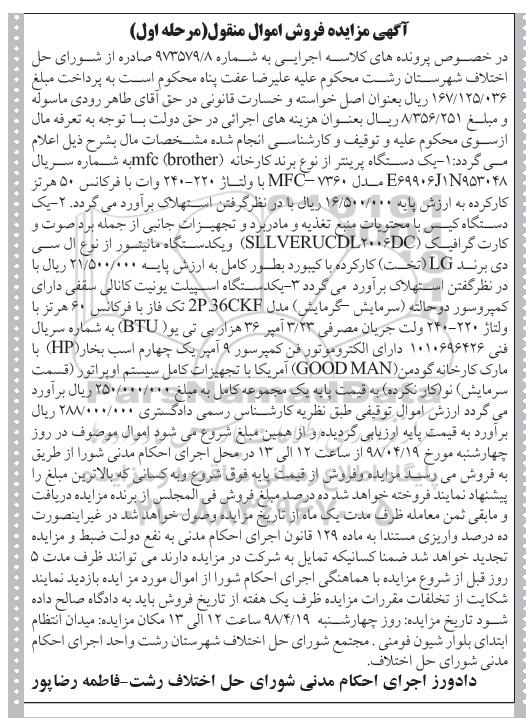 آگهی مزایده فروش اموال منقول(مرحله اول)
در خصوص پرونده های کلاسه اجرایی به شماره ۹۷۳۵۷۹/۸ صادره از شورای حل
اختلاف شهرستان رشت محکوم علیه علیرضا عفت پناه محکوم است به پرداخت مبلغ
۱۶۷/۱۲۵/۰۳۶ ریال بعنوان اصل خواسته و خسارت قانونی در حق آقای طاهر رودی ماسوله
و مبلغ ۸/۳۵۶/۲۵۱ ریال بعنوان هزینه های اجرائی در حق دولت با توجه به تعرفه مال
ازسوی محکوم علیه و توقیف و کارشناسی انجام شده مشخصات مال بشرح ذیل اعلام
می گردد:۱-یک دستگاه پرینتر از نوع برند کارخانه mfc (brother) به شماره سریال
E۶۹۹۰۶J۱N۹۵۳۰۴۸ مدل MFC–۷۳۶۰ با ولتاژ ۲۲۰-۲۴۰ وات با فرکانس ۵۰ هرتز
کارکرده به ارزش پایه ۱۶/۵۰۰/۰۰۰ ریال با در نظرگرفتن استهلاک برآورد می گردد. ۲-یک
دستگاه کیس با محتویات منبع تغذیه و مادربرد و تجهیزات جانبی از جمله برد صوت و
کارت گرافیک (SLLVERUCDL۲۰۰۶DC) ویکدستگاه مانیتور از نوع ال سی
دی برند LG (تخت) کارکرده با کیبورد بطور کامل به ارزش پایه ۲۱/۵۰۰/۰۰۰ ریال با
در نظرگفتن استهلاک برآورد می گردد ۳-یکدستگاه اسپیلت یونیت کانالی سقفی دارای
کمپروسور دوحالته (سرمایش –گرمایش) مدل 2P.36CKF تک فاز با فرکانس ۶۰ هرتز با
ولتاژ ۲۲۰-۲۴۰ ولت جریان مصرفی ۳/۲۳ آمپر ۳۶ هزار بی تی یو( BTU) به شماره سریال
فنی ۱۰۱۰۶۹۶۴۲۶ دارای الکتروموتور فن کمپرسور ۹ آمپر یک چهارم اسب بخار(HP) با
مارک کارخانه گودمن(GOOD MAN) آمریکا با تجهیزات کامل سیستم اوپراتور (قسمت
سرمایش) نو(کار نکرده) به قیمت پایه یک مجموعه کامل به مبلغ ۲۵۰/۰۰۰/۰۰۰ ریال برآورد
می گردد ارزش اموال توقیفی طبق نظریه کارشناس رسمی دادگستری ۲۸۸/۰۰۰/۰۰۰ ریال
برآورد به قیمت پایه ارزیابی گردیده و از همین مبلغ شروع می شود اموال موصوف در روز
چهارشنبه مورخ ۹۸/۰۴/۱۹ از ساعت ۱۲ الی ۱۳ در محل اجرای احکام مدنی شورا از طریق
به فروش می رسد مزایده وفروش از قیمت پایه فوق شروع وبه کسانی که بالاترین مبلغ را
پیشنهاد نمایند فروخته خواهد شد ده درصد مبلغ فروش فی المجلس از برنده مزایده دریافت
و مابقی ثمن معامله ظرف مدت یک ماه از تاریخ مزایده وصول خواهد شد در غیراینصورت
ده درصد واریزی مستندا به ماده ۱۲۹ قانون اجرای احکام مدنی به نفع دولت ضبط و مزایده
تجدید خواهد شد ضمنا کسانیکه تمایل به شرکت در مزایده دارند می توانند ظرف مدت ۵
روز قبل از شروع مزایده با هماهنگی اجرای احکام شورا از اموال مورد مزایده بازدید نمایند
شکایت از تخلفات مقررات مزایده ظرف یک هفته از تاریخ فروش باید به دادگاه صالح داده
شود تاریخ مزایده: روز چهارشنبه ۹۸/۴/۱۹ ساعت ۱۲ الی ۱۳ مکان مزایده: میدان انتظام
ابتدای بلوار شیون فومنی . مجتمع شورای حل اختلاف شهرستان رشت واحد اجرای احکام
مدنی شورای حل اختلاف.
دادورز اجرای احکام مدنی شورای حل اختلاف رشت-فاطمه رضاپور